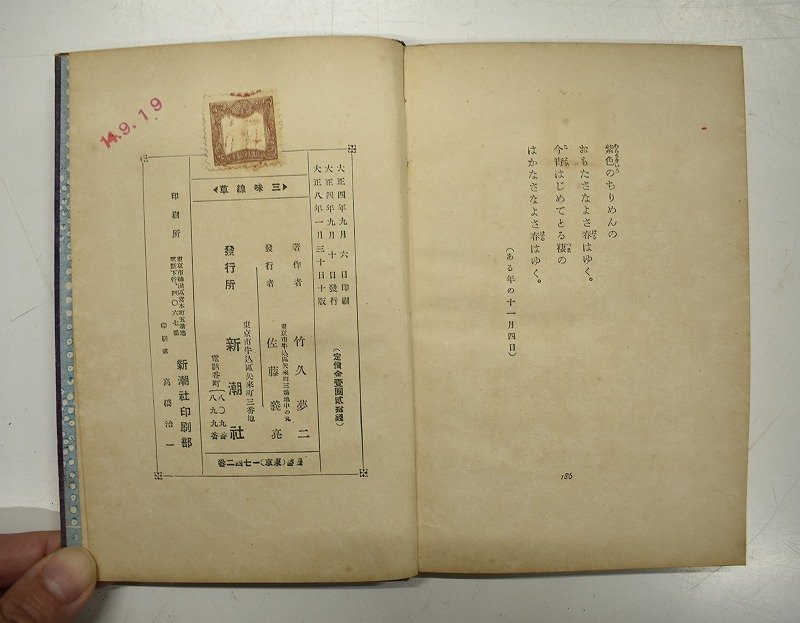 紫色のちりめんの
おもたさなよさ春はゆく。
今宵はじめてとる褄の
はかなさなよさ春はゆく。
(ある年の十一月四日)
186
大正四年九月六日印刷
大正四年九月十日發行
大正八年一月三十日十版
(定價金壹圓貳拾錢)
三味線草
著作者
竹久夢二
東京市牛込區矢來町三番地中の丸
發行者
佐藤義亮
東京市牛込區矢來町三番地
發行所
新潮社
電話番町
八〇九番
八九九番
振替(東京)一七四二番
印刷所
新潮社印刷部
印刷者
高橋治一
14.9.19